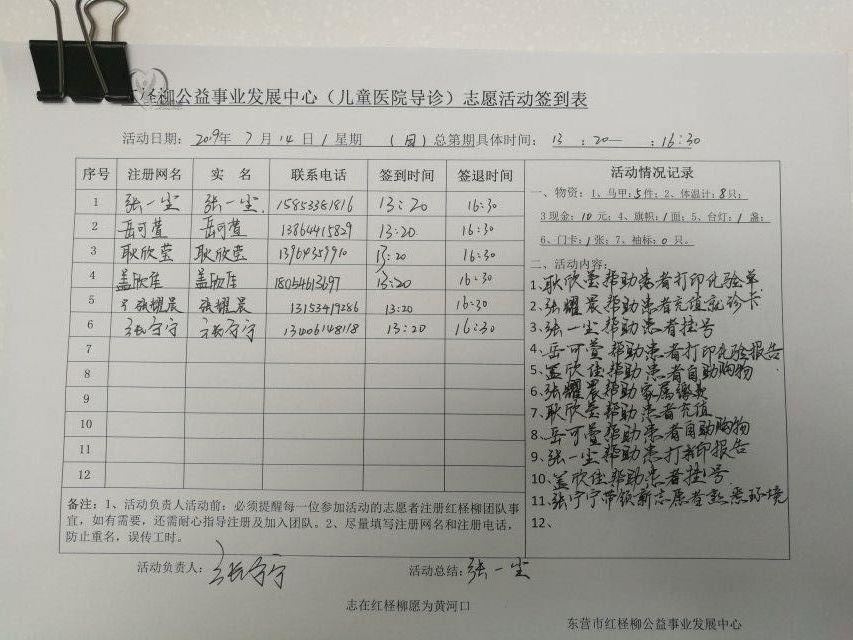 红柽柳公益事业发展中心（儿童医院导诊）志愿活动签到表
活动日期：2019年 7月 14日/星期 （日）总第期具体时间： 13 ：20— ：16:30
序号 注册网名 实 名 联系电话 签到时间 签退时间
1 张一尘 张一尘. 15853381816 13:20 16:30
2 岳可萱 岳可萱 13864415829 13:20 16:30
3 耿欣莹 耿欣莹 13964359910 13:20 16:30
4 盖欣佳 盖欣佳 18064613697 13:20 16:30
5 张耀晨 张耀晨 13153419286 13:20 16:30
6 张宁宁 张宁宁 13406148118 13:20 16:30
7
8
9
10
11
12
备注：1、活动负责人活动前：必须提醒每一位参加活动的志愿者注册红柽柳团队事
宜，如有需要，还需耐心指导注册及加入团队。2、尽量填写注册网名和注册电话，
防止重名，误传工时。
活动情况记录
一、物资：1、马甲：5件；2、体温计：8只；
3现金：10元；4、旗帜：1面；5、台灯：1盏；
6、门卡：1张；7、袖标：0只。
二、活动内容：
1、耿欣莹帮助患者打印化验单
2、张耀晨帮助患者充值就诊卡
3、张一尘帮助患者挂号
4、岳可萱帮助患者打印化验报告
5、盖欣佳帮助患者自助购物
6、张耀晨帮助家属缴费
7、耿欣莹帮助患者充值
8、岳可萱帮助患者自助购物
9、张一尘帮助患者打印报告
10、盖欣佳帮助患者挂号
11、张宁宁带领新志愿者熟悉环境
12、
活动负责人：张宁宁 活动总结：张一尘
志在红柽柳愿为黄河口
东营市红柽柳公益事业发展中心